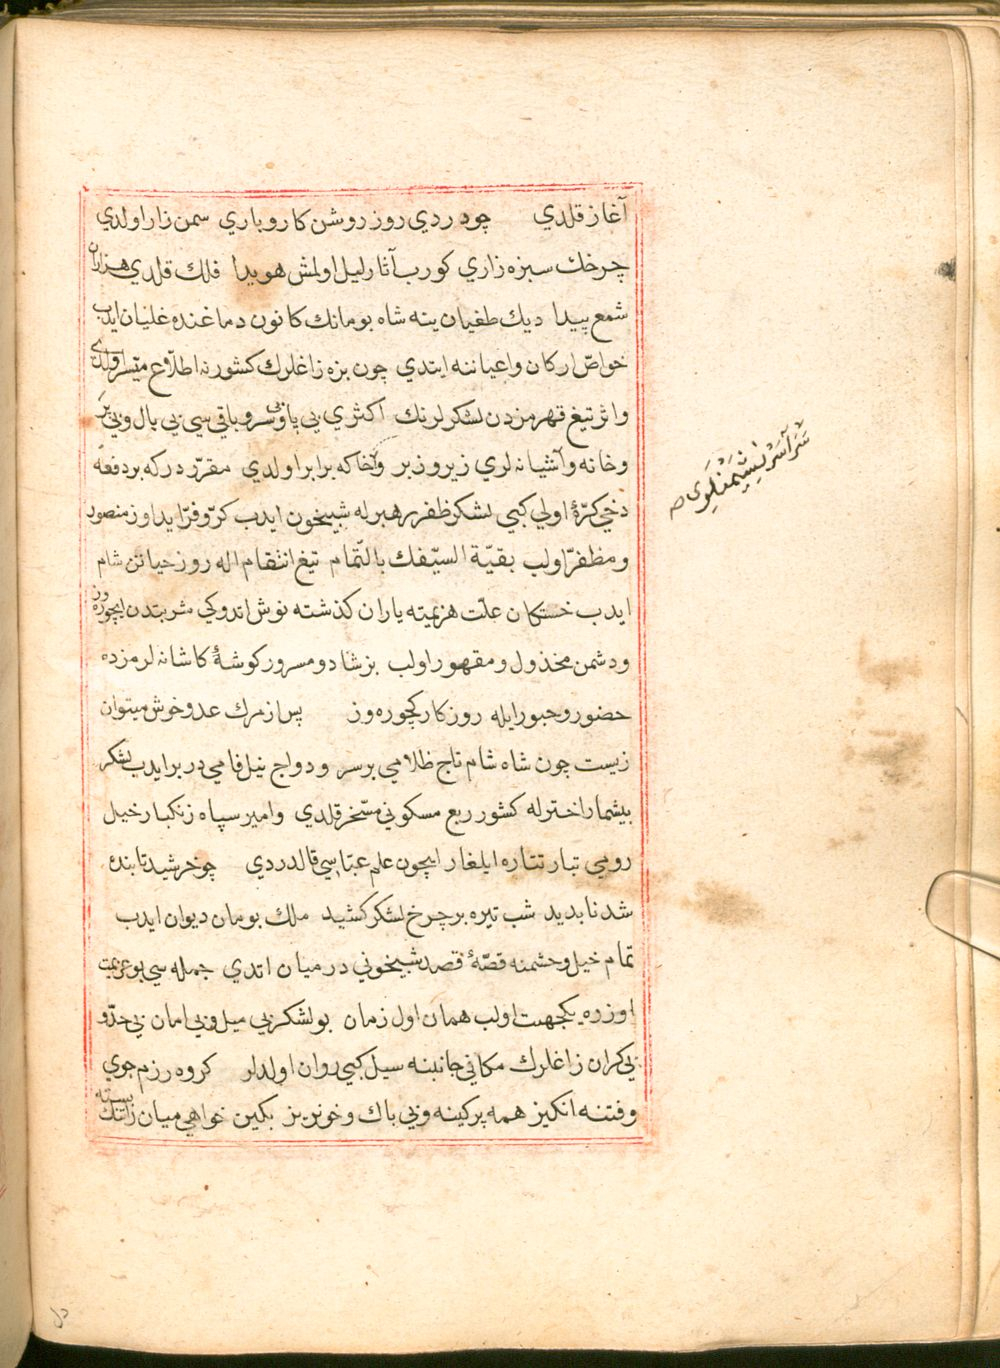 آغاز قلدي چو در دي روز روشن كاروباري سمن زار اولدي
چرخك سبزه زاري كورب آثار ليل اولمش هويدا فلك قلدي هزاران
شمع پيدا ديك طغيان ينه شاه بومانك كانون دماغنده غليان ايدب
خواصّ اركان واعياننه ايتدي چون بزه زاغلرك كشورنه اطلاّع ميّسر اولدي
واثر تيغ قهرمزدن لشكر لرنك اكثري بي پا وبي سر و باقيسي بي بال وبي پر
وخانه وآشيانه لري زير وزبر وخاكه برابر اولدي مقرّر در كه بر دفعه
دخي كرّۀ اولي كبي لشكر ظفر رهبر له شبيخون ايدب كرّ وفرّ ايداوز منصور
ومظفرّ اولب بقيّة السيّفك بالتّمام تيغ انتقام اله روز حياتن شام
ايدب خستكان علّت هزيمته ياران كذشته نوش اتدوكي مشربتدن ايچوره وز
ودشمن مخذول ومقهور اولب بز شاد ومسرور كوشۀ كاشانه لرمزده
حضور وحبور ايله روزكار كچوره وز پس از مرك عدو خوش ميتوان
زيست چون شاه شام تاج ظلامي بر سر ودواج نيل فامي در بر ايدب لشكر
بيشمار اختر له كشور ربع مسكوني مسّخر قلدي وامير سپاه زنكبار خيل
رومي تبار تتاره ايلغار ايچون علم عبّاسي قالدردي چو خرشيد تابنده
شد نابديد شب تيره بر چرخ لشكر كشيد ملك بومان ديوان ايدب
تمام خيل وحشمنه قصّۀ قصد شبيخوني درميان اتدي جمله سي بو عزيمت
اوزره يكجهت اولب همان اول زمان بو لشكر بي ميل وبي امان بي حدّ و
بي كران زاغلرك مكاني جانبنه سيل كبي روان اولدلر كروه رزم جوي
وفتنه انكيز همه پر كينه وبي باك وخونريز بكين خواهي ميان بسته